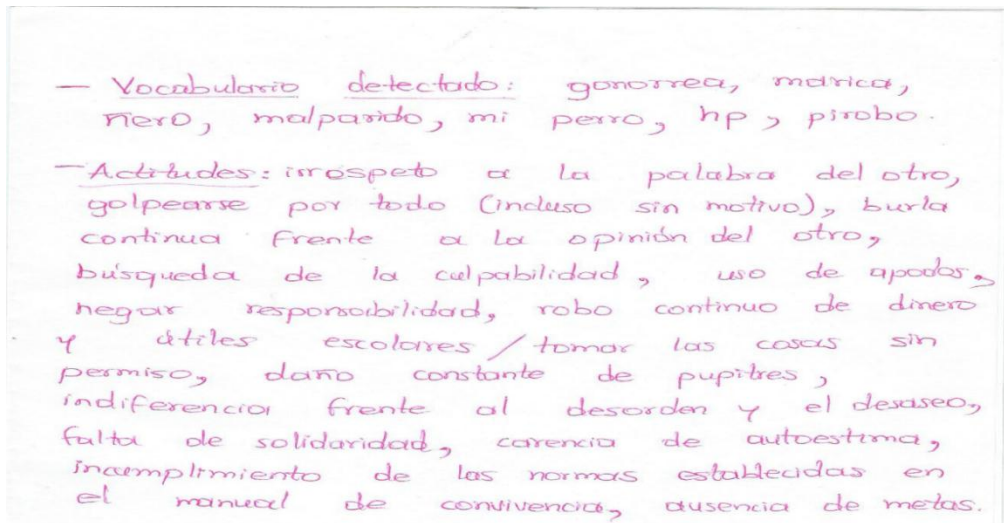 — Vocabulario detectado: gonorrea, marica,
ñero, malparido, mi perro, hp, pirobo.
— Actitudes: irrespeto a la palabra del otro,
golpearse por todo (incluso sin motivo), burla
continua frente a la opinión del otro,
búsqueda de la culpabilidad, uso de apodos,
negar responsabilidad, robo continuo de dinero
y útiles escolares / tomar las cosas sin
permiso, daño constante de pupitres,
indiferencia frente al desorden y el desaseo,
falta de solidaridad, carencia de autoestima,
incumplimiento de las normas establecidas en
el manual de convivencia, ausencia de metas.